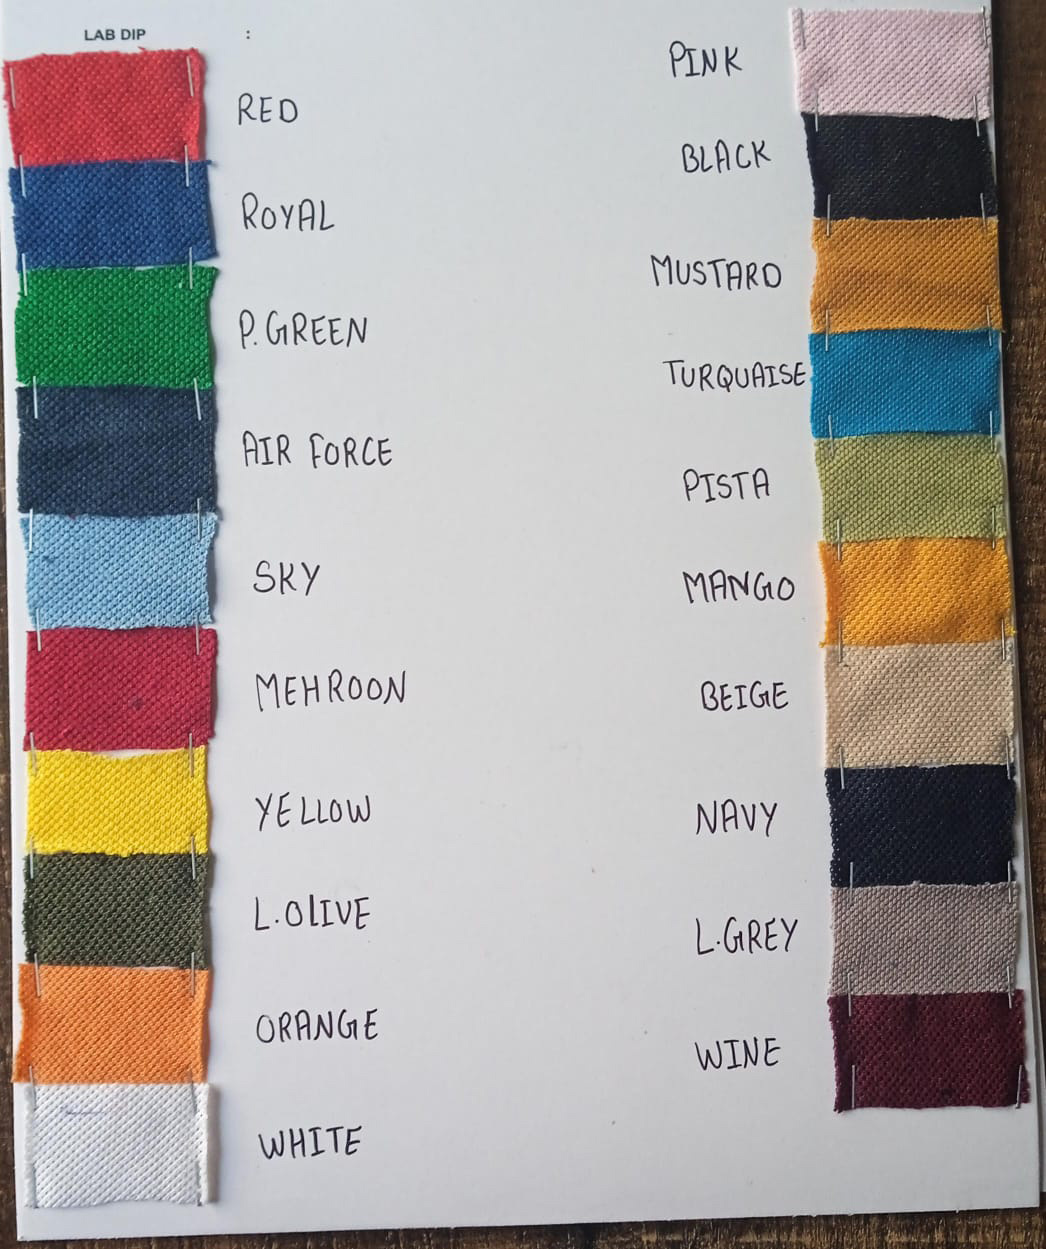 LAB DIP :
RED
ROYAL
P.GREEN
AIR FORCE
SKY
MEHROON
YELLOW
L.OLIVE
ORANGE
WHITE
PINK
BLACK
MUSTARD
TURQUAISE
PISTA
MANGO
BEIGE
NAVY
L.GREY
WINE